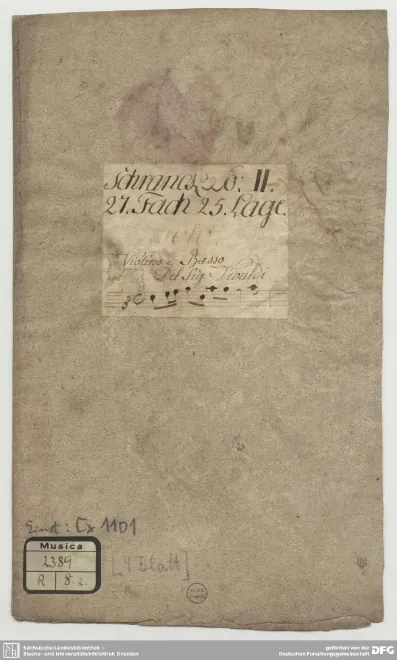 Schranck No: II.
27. Fach 25. Lage.
Violino e Basso
Del Sigr Vivaldi
Einst: Cx 1101
Musica
2389
R 8.2.
[4 Blatt]
Sächsische Landesbibliothek -
Staats- und Universitätsbibliothek Dresden
gefördert von der
Deutschen Forschungsgemeinschaft DFG